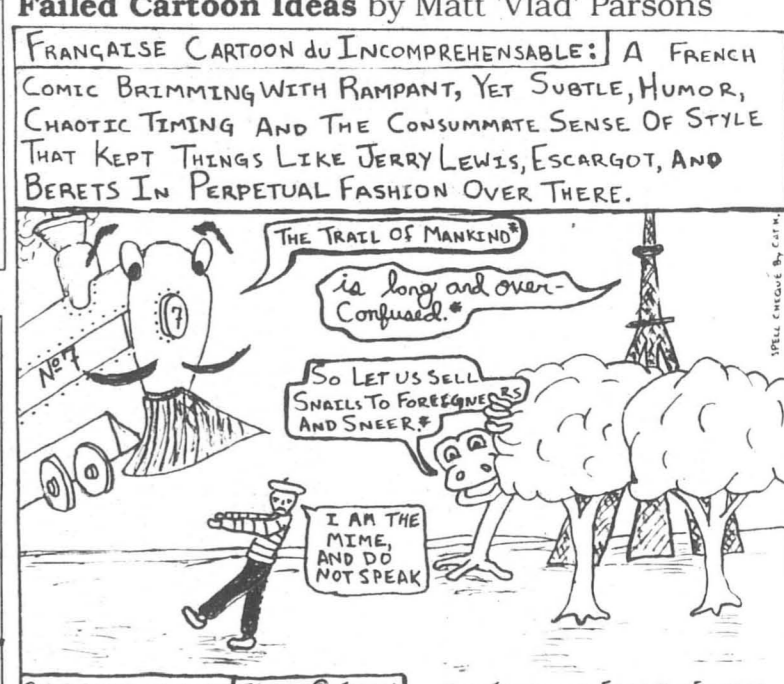 Failed Cartoon Ideas by Matt 'Vlad' Parsons
FRANÇAISE CARTOON du INCOMPREHENSABLE: A FRENCH
COMIC BRIMMING WITH RAMPANT, YET SUBTLE, HUMOR,
CHAOTIC TIMING AND THE CONSUMMATE SENSE OF STYLE
THAT KEPT THINGS LIKE JERRY LEWIS, ESCARGOT, AND
BERETS IN PERPETUAL FASHION OVER THERE.
THE TRAIL OF MANKIND*
is long and over-
Confused.*
SO LET US SELL
SNAILS TO FOREIGNERS
AND SNEER.*
I AM THE
MIME,
AND DO
NOT SPEAK
7
Nº7
SPELL CHEQUE By